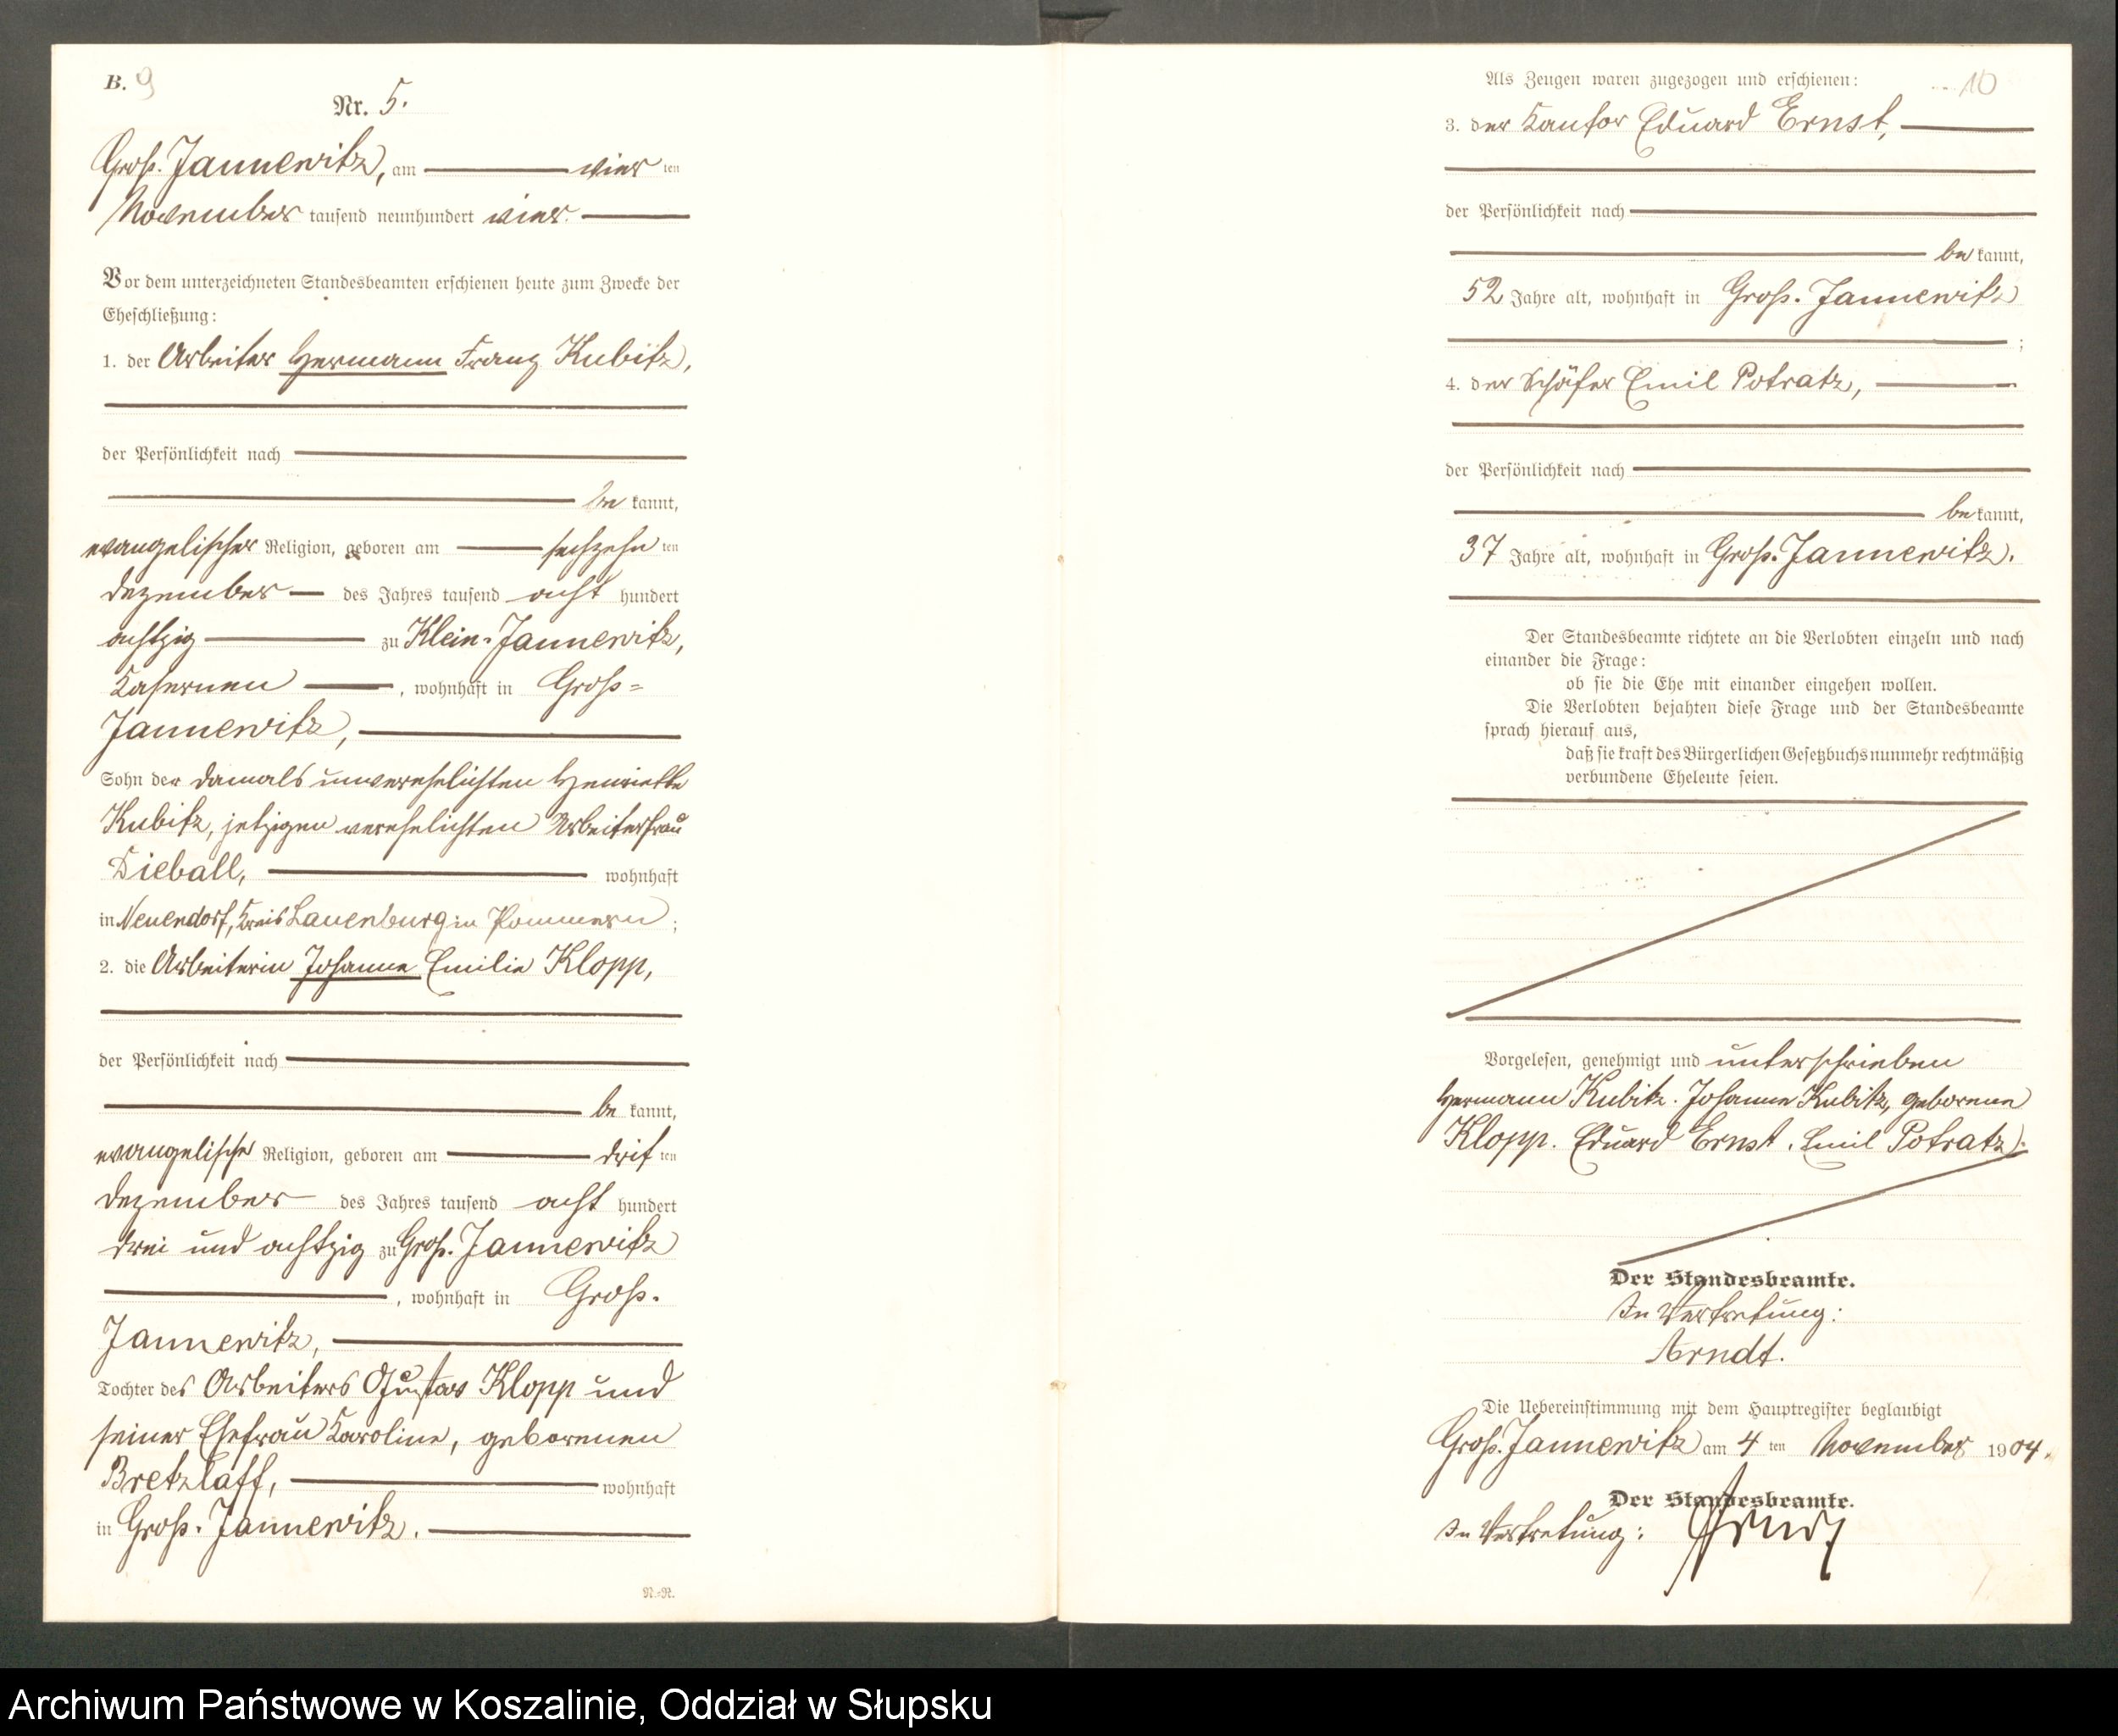 B. 9
Nr. 5.
Groß-Jannewitz, am vier ten
November tausend neunhundert vier.
Vor dem unterzeichneten Standesbeamten erschienen heute zum Zwecke der
Eheschließung:
1. der Arbeiter Hermann Franz Kubitz,
der Persönlichkeit nach
be kannt,
evangelischer Religion, geboren am sechzehn ten
Dezember des Jahres tausend acht hundert
achtzig zu Klein-Jannewitz,
Kasernen, wohnhaft in Groß-
Jannewitz,
Sohn der damals unverehelichten Henriette
Kubitz, jetzigen verehelichten Arbeiterfrau
Dieball, wohnhaft
in Neuendorf, Kreis Lauenburg in Pommern;
2. die Arbeiterin Johanne Emilie Klopp,
der Persönlichkeit nach
be kannt,
evangelischer Religion, geboren am dritten
Dezember des Jahres tausend acht hundert
drei und achtzig zu Groß-Jannewitz
, wohnhaft in Groß-
Jannewitz,
Tochter des Arbeiters Gustav Klopp und
seiner Ehefrau Karoline, geborenen
Bretzlaff, wohnhaft
in Groß-Jannewitz.
N.-N.
Als Zeugen waren zugezogen und erschienen: 10
3. der Kantor Eduard Ernst,
der Persönlichkeit nach
be kannt,
52 Jahre alt, wohnhaft in Groß-Jannewitz
;
4. der Schäfer Emil Potratz,
der Persönlichkeit nach
be kannt,
37 Jahre alt, wohnhaft in Groß-Jannewitz.
Der Standesbeamte richtete an die Verlobten einzeln und nach
einander die Frage:
ob sie die Ehe mit einander eingehen wollen.
Die Verlobten bejahten diese Frage und der Standesbeamte
sprach hierauf aus,
daß sie kraft des Bürgerlichen Gesetzbuchs nunmehr rechtmäßig
verbundene Eheleute seien.
Vorgelesen, genehmigt und unterschrieben
Hermann Kubitz. Johanne Kubitz, geborene
Klopp. Eduard Ernst. Emil Potratz.
Der Standesbeamte.
In Vertretung:
Arndt.
Die Uebereinstimmung mit dem Hauptregister beglaubigt
Groß-Jannewitz am 4 ten November 1904.
Der Standesbeamte.
In Vertretung: Arndt
Archiwum Państwowe w Koszalinie, Oddział w Słupsku